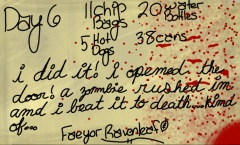 Day 6 11 chip Bags 20 water Bottles
5 Hot Dogs 38 cans
i did it! i opened the
door! a zombie rushed im
and i beat it to death...kind
of...